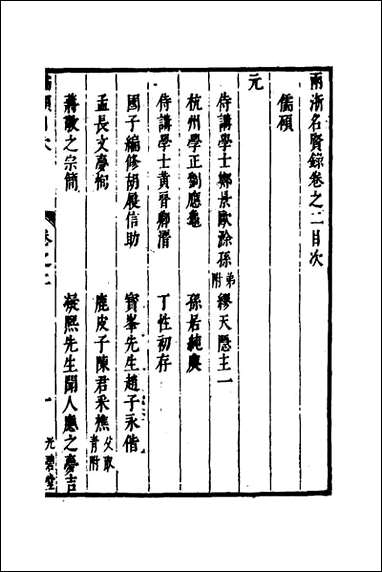 兩浙名賢錄卷之二目次
儒碩
元
侍講學士鄭景歐滁孫弟附 繆天隱主一
杭州學正劉應龜 孫君純庚
侍講學士黃晉卿溍 丁性初存
國子編修胡履信助 寶峯先生趙子永偕
孟長文夢恂 鹿皮子陳君采樵父取青附
蔣敬之宗簡 凝熙先生聞人應之夢吉
儒碩目次 卷之二 一 光碧堂